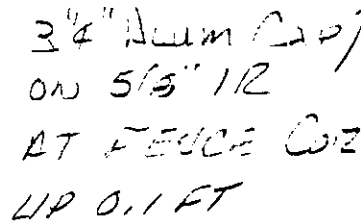 3"¼" ALUM CAP
ON 5/8" IR
AT FENCE COR
UP 0.1 FT